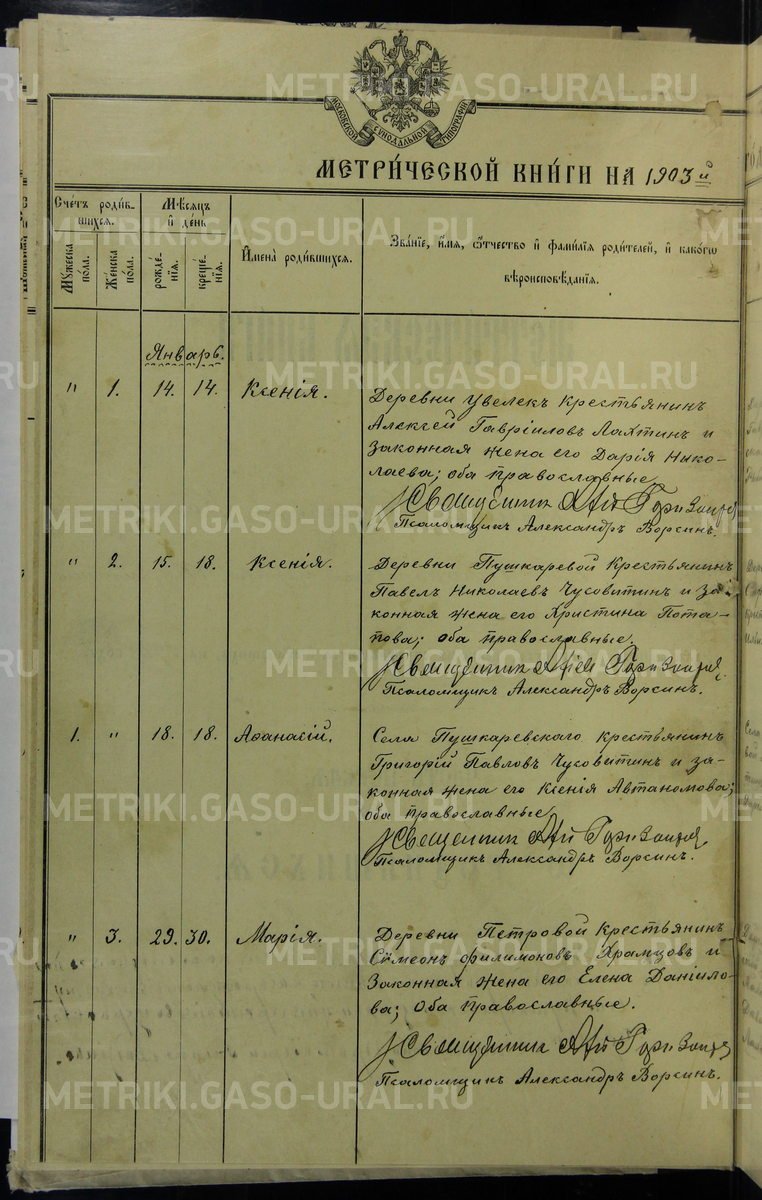 МОСКОВСКОЙ СѴНОДАЛЬНОЙ ТИПОГРАФІИ
МЕТРИ́ЧЕСКОЙ КНИ́ГИ НА 1903й
Счетъ роди́в-
шихся.
Мѣсяцъ
и҆ де́нь
И҆мена̀ роди́вшихся.
Зва́ніе, и҆́мя, ѻ҆́тчество и҆ фами́лія роди́телей, и҆ како́гѡ
вѣроисповѣ́данія.
Мꙋжеска
по́ла.
Же́нска
по́ла.
рожде́-
нія.
креще́-
нія.
Январь.
" 1. 14. 14. Ксенія.
Деревни Увелекъ крестьянинъ
Алексей Гавріиловъ Лахтинъ и
законная жена его Дарія Нико-
лаева; оба православные
Священник
Псаломщикъ Александръ Ворсинъ.
" 2. 15. 18. Ксенія.
Деревни Пушкаревой крестьянинъ
Павелъ Николаевъ Чусовитинъ и за-
конная жена его Христина Пота-
пова; оба православные.
Священник
Псаломщикъ Александръ Ворсинъ.
1. " 18. 18. Аѳанасій.
Села Пушкаревскаго крестьянинъ
Григорій Павловъ Чусовитинъ и за-
конная жена его Ксенія Автаномова;
оба православные
Священник
Псаломщикъ Александръ Ворсинъ.
" 3. 29. 30. Марія.
Деревни Петровой крестьянинъ
Сѵмеонъ Филимоновъ Храмцовъ и
законная жена его Елена Даніило-
ва; оба православные.
Священник
Псаломщикъ Александръ Ворсинъ.
METRIKI.GASO-URAL.RU